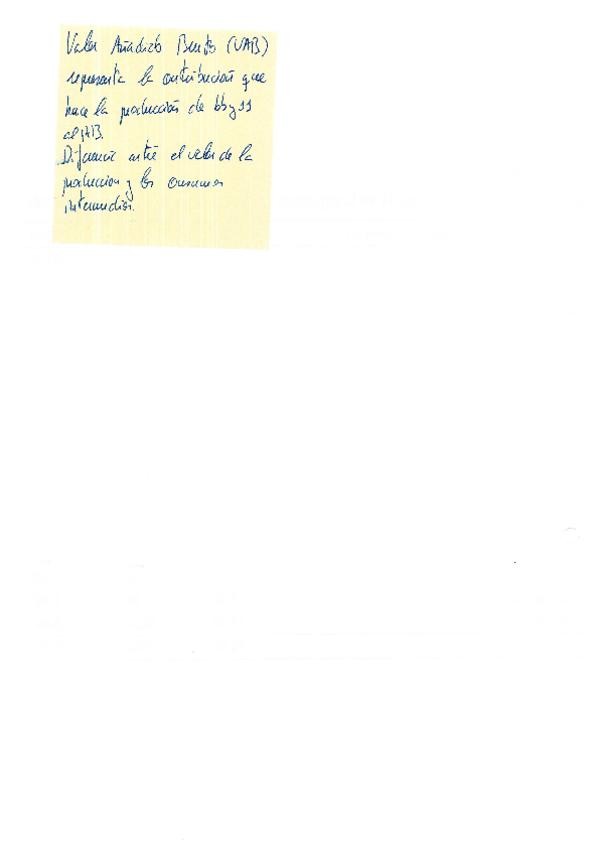 Valor Añadido Bruto (VAB)
representa la contribución que
hace la producción de bbyss
al PIB.
Diferencia entre el valor de la
producción y los consumos
intermedios.